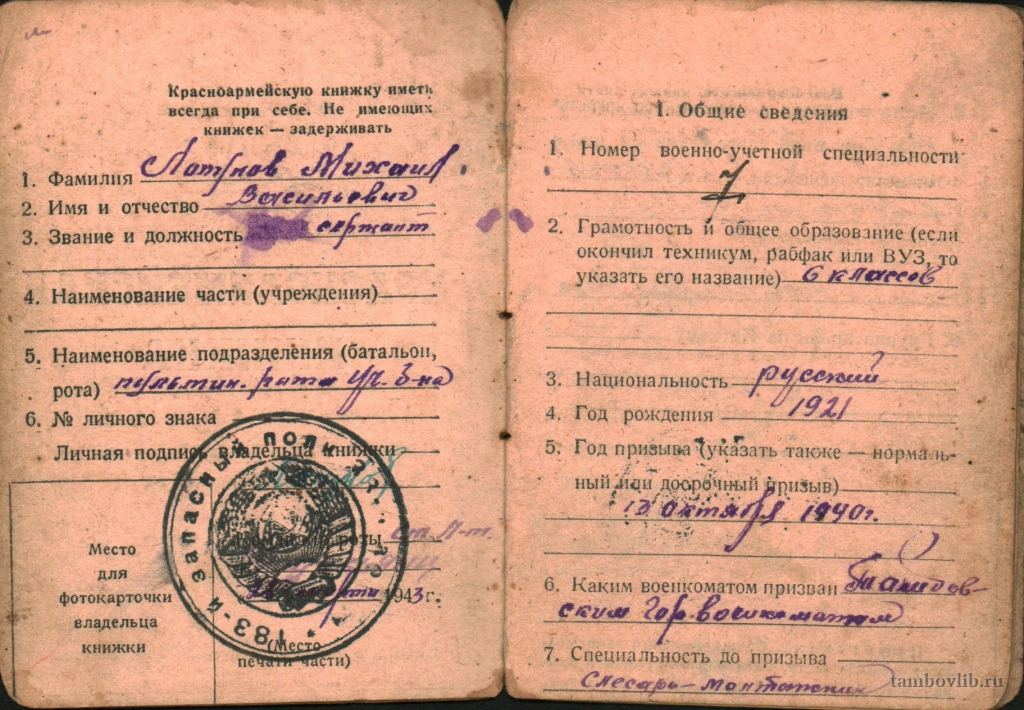 Красноармейскую книжку иметь
всегда при себе. Не имеющих
книжек — задерживать
1. Фамилия Лотунов Михаил
2. Имя и отчество Васильевич
3. Звание и должность сержант
4. Наименование части (учреждения)
5. Наименование подразделения (батальон,
рота) пульмин. рота уч. б-на
6. № личного знака
Личная подпись владельца книжки
183-й ЗАПАСНЫЙ ПОЛК
1943 г.
Место
для
фотокарточки
владельца
книжки
(Место
печати части)
1. Общие сведения
1. Номер военно-учетной специальности
7
2. Грамотность и общее образование (если
окончил техникум, рабфак или ВУЗ, то
указать его название) 6 классов
3. Национальность русский
4. Год рождения 1921
5. Год призыва (указать также — нормаль-
ный или досрочный призыв)
октября 1940г.
6. Каким военкоматом призван Тамбов-
ским Гор.военкоматом
7. Специальность до призыва
Слесарь-монтажник
tambovlib.ru